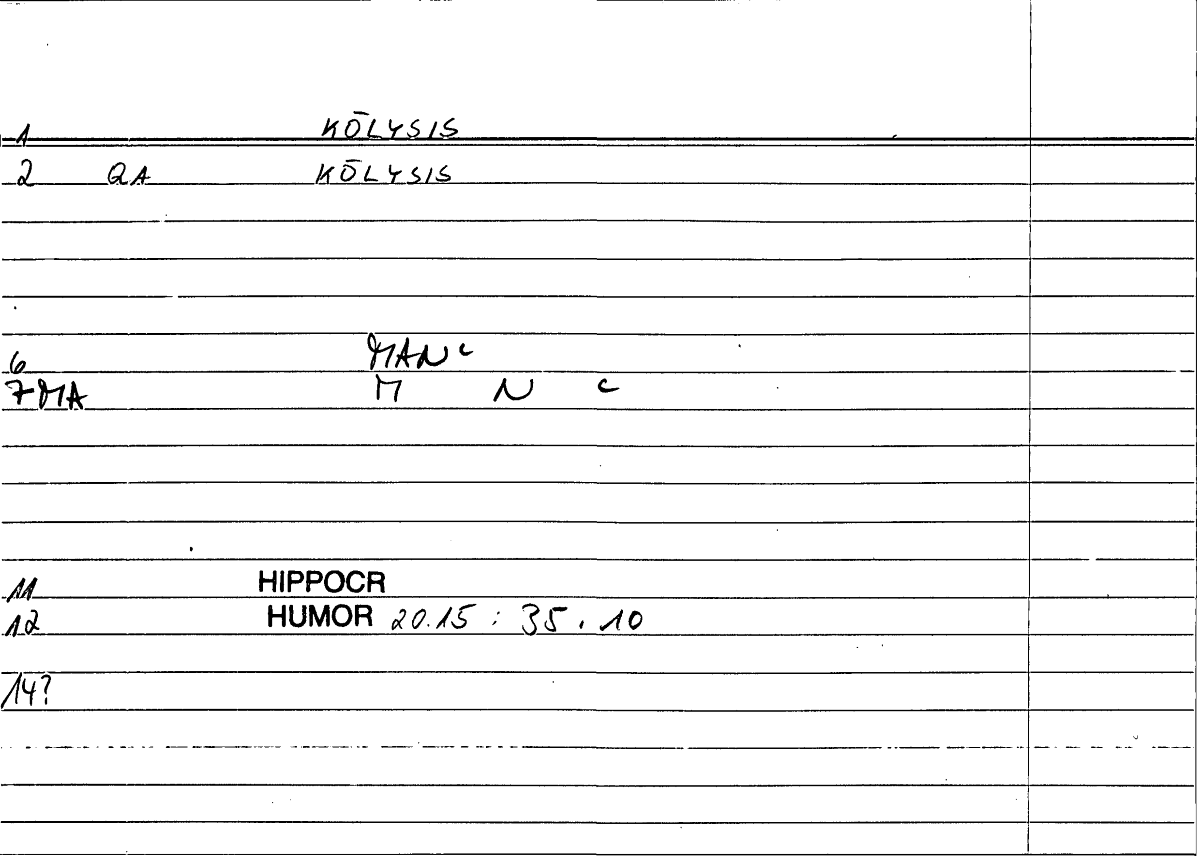 1 KŌLYSIS
2 QA KŌLYSIS
6 MANC
7 MA M N C
11 HIPPOCR
12 HUMOR 20.15 : 35.10
14?